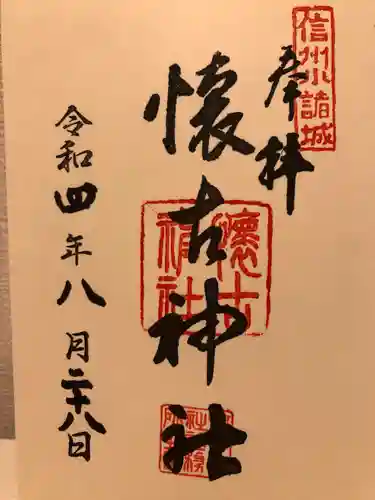 信州小諸城
奉拝
懐古神社
懐古神社
令和四年八月二十八日